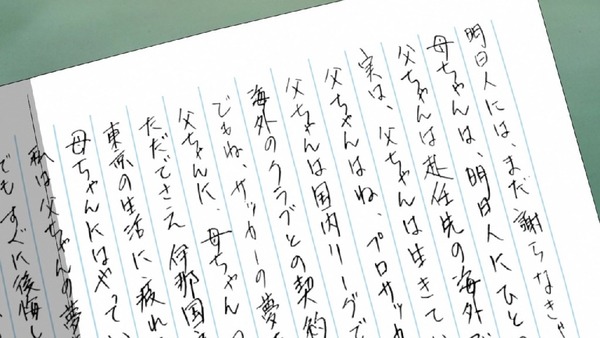 明日人には、まだ謝らなき
母ちゃんは、明日人にひと
父ちゃんは赴任先の海外
実は、父ちゃんは生きて
父ちゃんはね、プロサッカ
父ちゃんは国内リーグで
海外のクラブとの契約
でもね、サッカーの夢
父ちゃんに、母ちゃん
ただでさえ伊那国
東京の生活に疲れ
母ちゃんにはやってい
私は父ちゃんの夢
でもすぐに後悔し